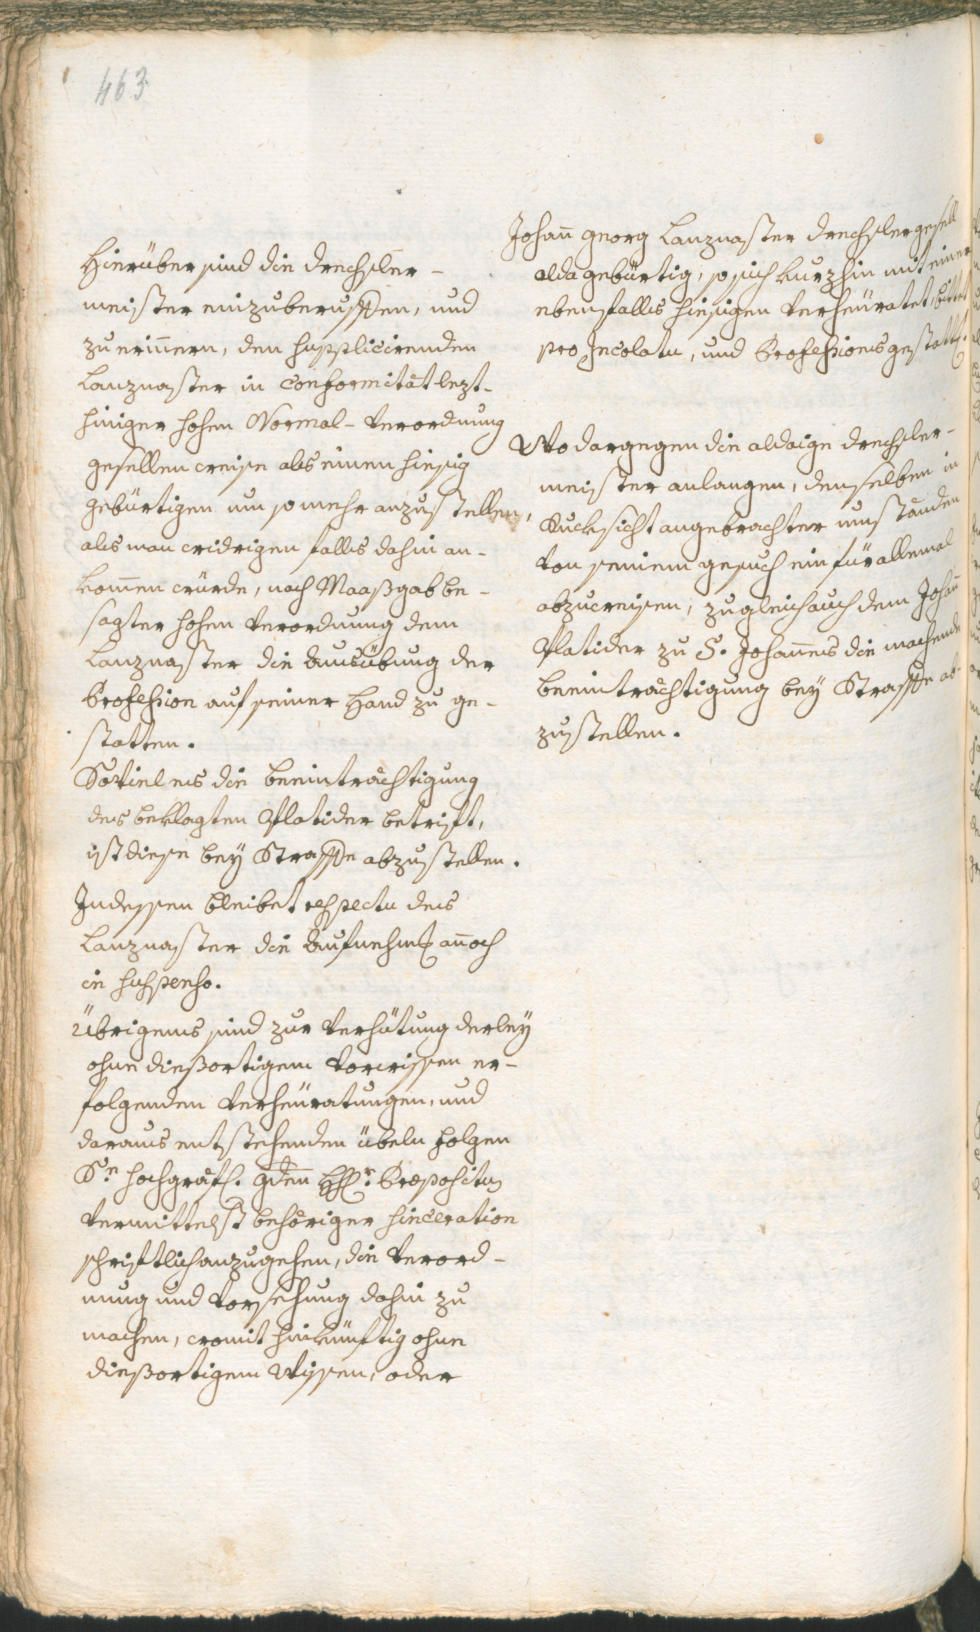 463
Hierüber sind die Drechsler-
meister einzuberuffen, und
zu erinnern, den supplicirenden
Lanznaster in conformität lezt-
hiniger hohen Normal-Verordnung
gesellen weise als einen hiesig
gebürtigen um so mehr anzustellen,
als man widrigen falls dahin an-
kom̄en würde, nach Maaßgab be-
sagter hohen Verordnung dem
Lanznaster die Ausübung der
Profession auf seiner Hand zu ge-
statten.
Soviel es die beeinträchtigung
des beklagten Platider betrift,
ist diese bey Straffe abzustellen.
Indessen bleibet respectu des
Lanznaster die Aufnehmg an̄och
in suspenso.
Übrigens sind zur Verhütung derley
ohne dießortigem Vorwissen er-
folgenden Verheüratungen, und
daraus entstehenden übeln folgen
Sr. hochgräfl. gden H. Hr. Præpositus
Vermittelst behöriger Sinceration
schriftlich anzugehen, die Verord-
nung und Vorsehung dahin zu
machen, womit hinkünftig ohne
dießortigem Wissen, oder
Johan̄ Georg Lanznaster Drechslergesell
alda gebürtig, so sich kurzhin mit einer
ebenfalls hiesigen Verheüratet, bittet
pro Incolatu, und Professions gestattg.
Wo dargegen die aldaige Drechsler-
meister anlangen, denselben in
Rucksicht angebrachter umständen
von seinem gesuch ein für allemal
abzuweisen, zugleich auch dem Johan̄
Platider zu S. Johan̄es die machende
beeinträchtigung bey Straffe ab-
zustellen.